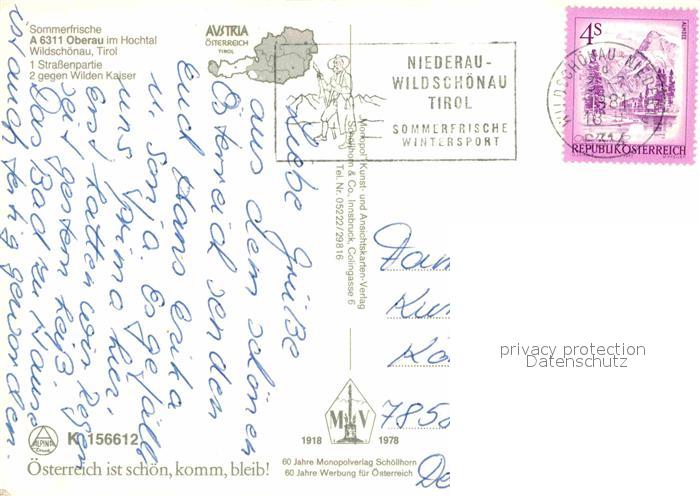 Sommerfrische
A 6311 Oberau im Hochtal
Wildschönau, Tirol
1 Straßenpartie
2 gegen Wilden Kaiser
AVSTRIA
ÖSTERREICH
TIROL
NIEDERAU-
WILDSCHÖNAU
TIROL
SOMMERFRISCHE
WINTERSPORT
WILDSCHÖNAU-NIEDERAU
4S
ALMSEE
REPUBLIK ÖSTERREICH
Liebe Grüße
aus dem schönen
Österreich senden
Euch Hans Erika
u. Sonja. Es gefällt
uns prima hier.
Erst hatten wir Regen
seit gestern heiß.
Das Bad zu Hause
ist auch fertig geworden.
"Monopol" Kunst- und Ansichtskarten-Verlag
Schöllhorn & Co., Innsbruck, Colingasse 6
Tel. Nr. 05222/29816
Fam
Ku
Kö
785
De
privacy protection
Datenschutz
ALPINA
K 156612
Österreich ist schön, komm, bleib!
M V
1918 1978
60 Jahre Monopolverlag Schöllhorn
60 Jahre Werbung für Österreich